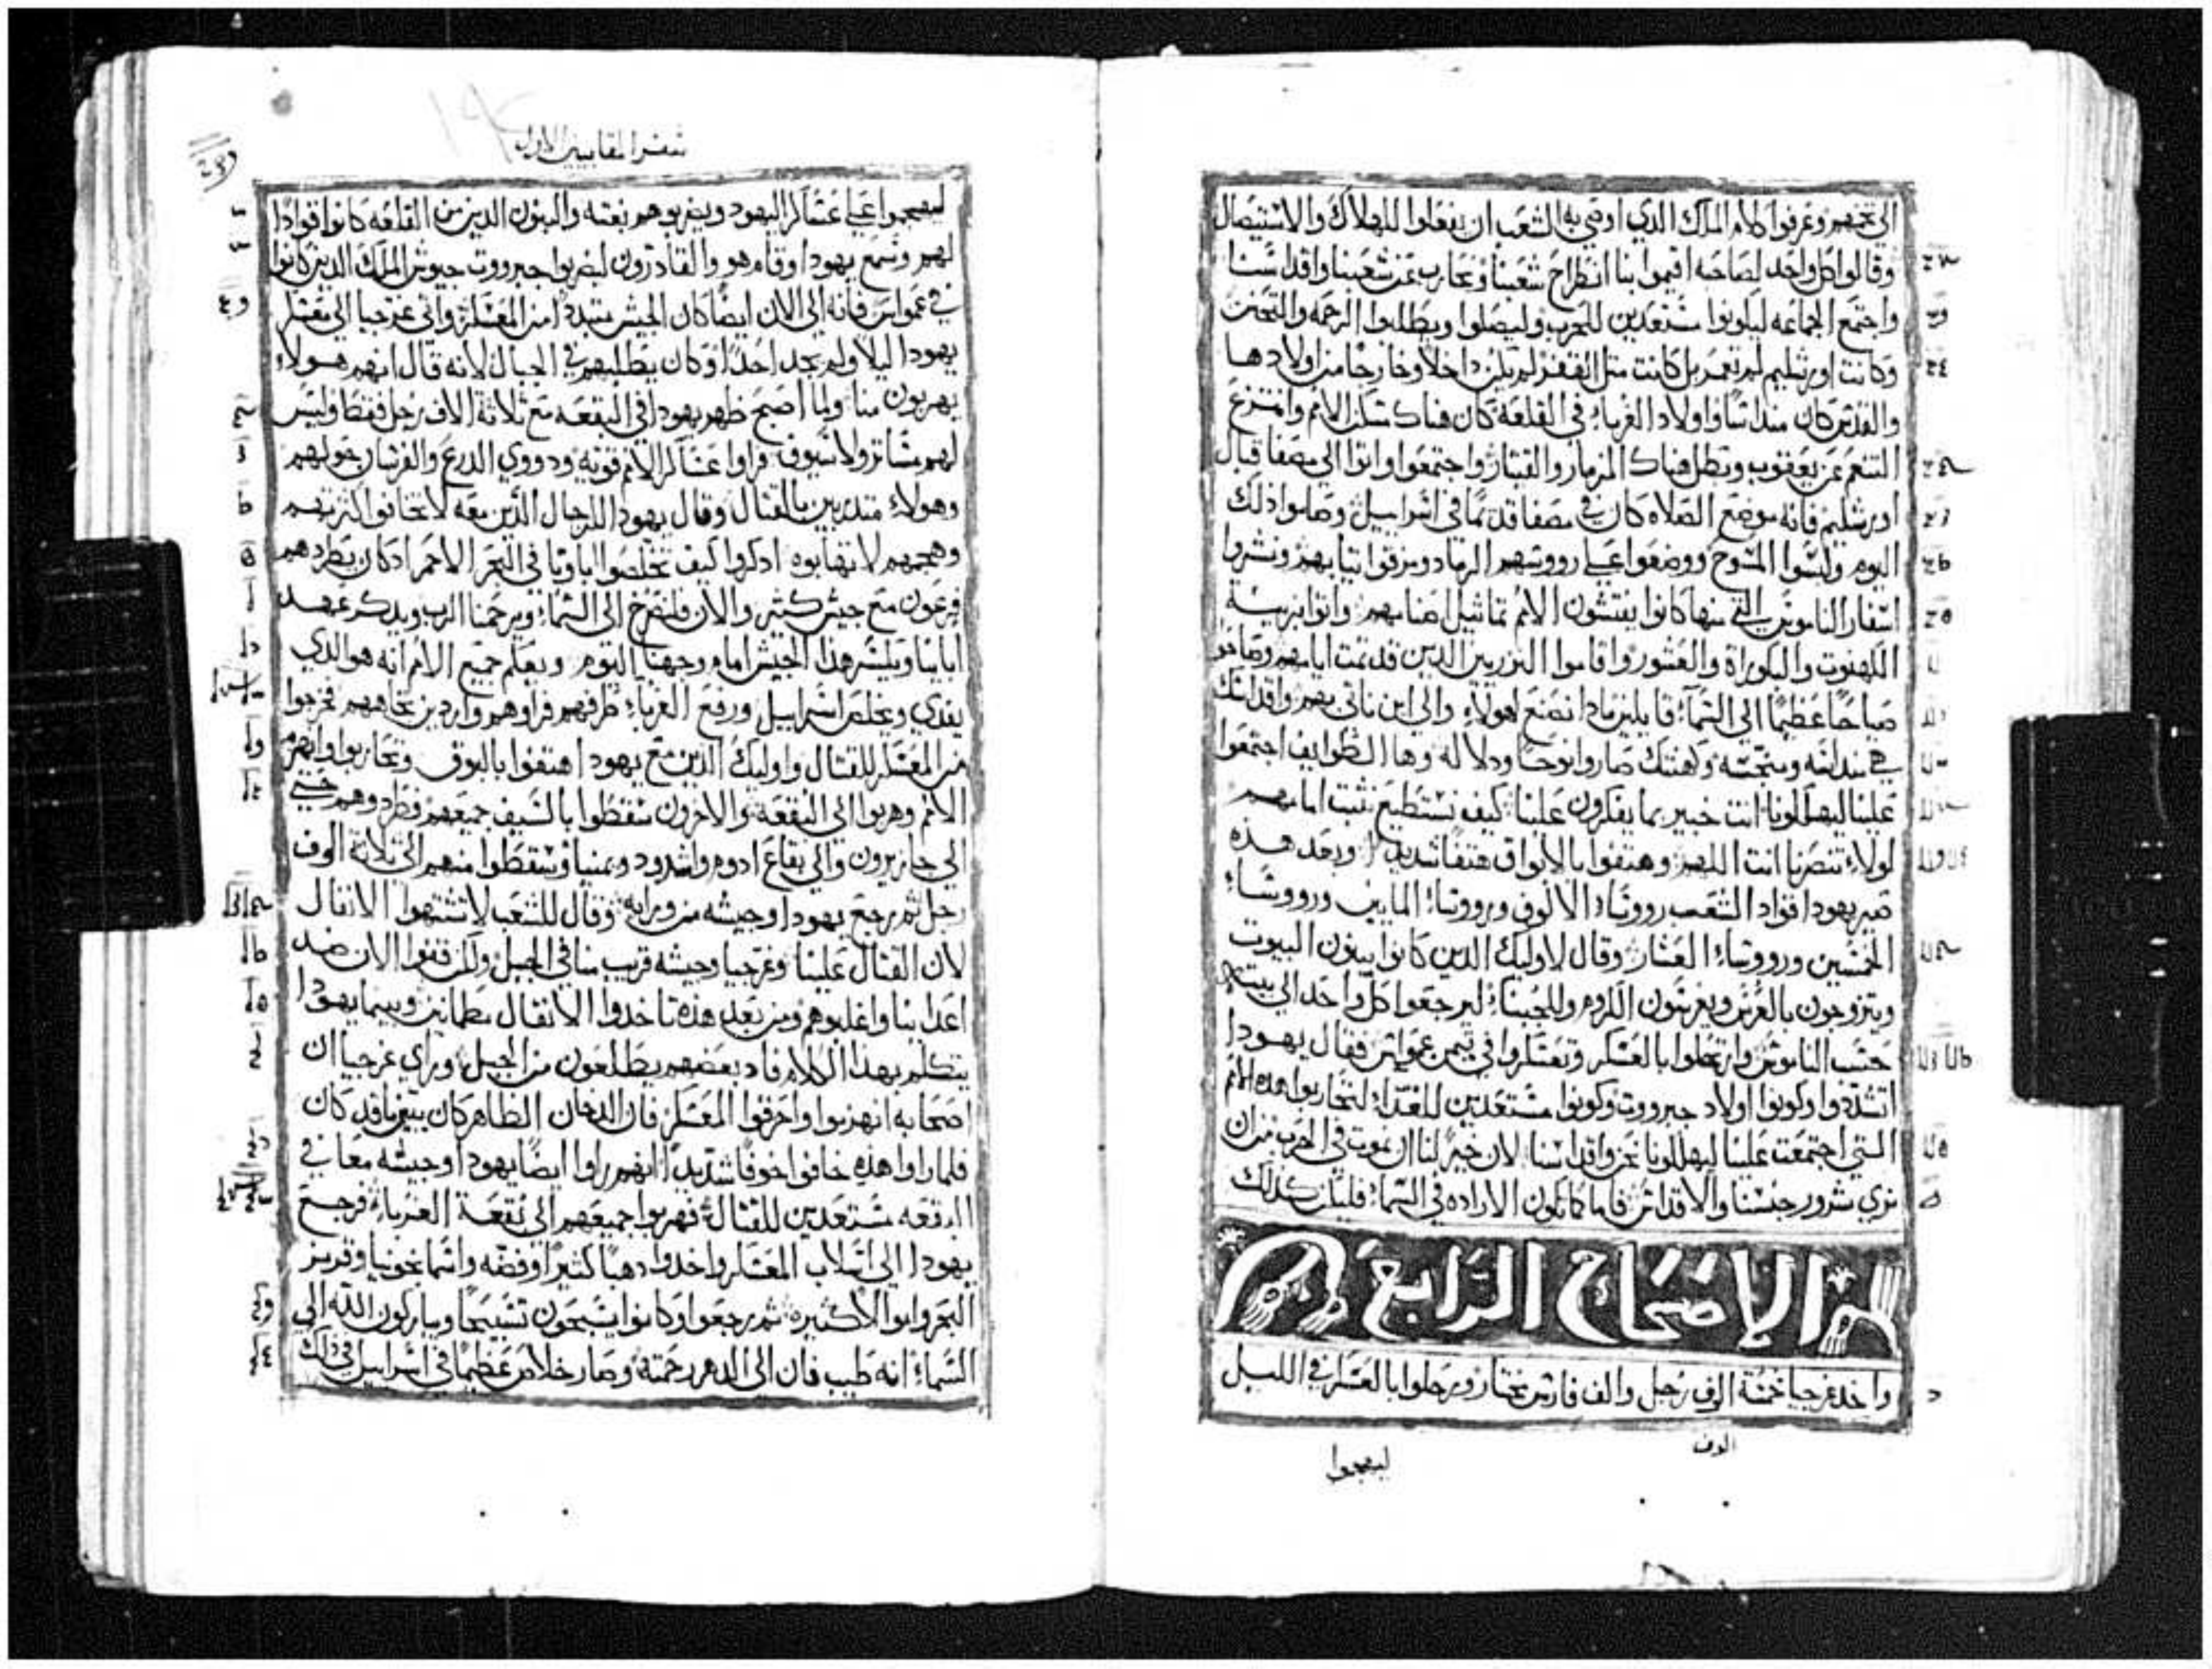 الي تخمهم وعرفوا كلام الملك الدي اوصي به الشعب ان يفعلوا للهلاك والاستيصال
وقالوا كل واحد لصاحبه اقيموا بنا انطراح شعبنا ونحارب عن شعبنا واقداسنا
واجتمع الجماعه ليكونوا مستعدين للحرب وليصلوا ويطلبوا الرحمه والتحنن
وكانت اورشليم لم تعمر بل كانت مثل القفر لم يكن داخلا وخارجا من اولادها
والقدس كان منداسا واولاد الغرباء في القلعه كان هناك مسكن الامم وانتزع
التنعم عن يعقوب وبطل هناك المزمار والقيثار واجتمعوا واتوا الي مصفا قبال
اورشليم فانه موضع الصلاه كان في مصفا قديما في اسراييل وصاموا ذلك
اليوم ولبسوا المسوح ووضعوا علي رووسهم الرماد ومزقوا تيابهم ونشروا
اسفار الناموس التي منها كانوا يفتشون الامم تماثيل اصنامهم واتوا بزينة
الكهنوت والبكوراة والعشور واقاموا النزريين الدين قد تمت ايامهم وصاحوا
صياحا عظيما الي السماء قايلين مادا نصنع لهولاء والي اين ناتي بهم واقداسك
في منداسه ومنجسه وكهنتك صاروا نوحا ودلاله وها الطوايف اجتمعوا
علينا ليهلكونا انت خبير بما يفكرون علينا كيف نستطيع نثبت امامهم
لولاء تنصرنا انت اللهم وهتفوا بالابواق هتفا شديدا وبعد هده
صير يهودا قواد الشعب رووساء الالوف ورووساء المايين ورووساء
الخمسين ورووساء العشار وقال لاوليك الدين كانوا يبنون البيوت
ويتزوجون بالعرس ويغرسون الكروم وللجبناء ليرجعوا كل واحد الي بيته
حسب الناموس وارتحلوا بالعسكر وتعسكروا في تيمن عمواس فقال يهودا
اتشددوا وكونوا اولاد جبرووت وكونوا مستعدين للغداء لتحاربوا هده الامم
التي اجتمعت علينا ليهلكونا نحن واقداسنا لان خير لنا ان نموت في الحرب من ان
نري شرور جنسنا والاقداس فاما كما تكون الاراده في السماء فليكن كدلك
الاصحاح الرابع
واخد غرجيا خمسة الوف رجل والف فارس مختار ورحلوا بالعسكر في الليل
الوف
ليهجموا
سفر المقابيين الاول
ليهجموا علي عساكر اليهود ويضربوهم بغته والبنون الدين من القلعه كانوا قوادا
لهم وسمع يهودا وقام هو والقادرون ليضربوا جبرووت جيوش الملك الدين كانوا
في عمواس فانه الي الان ايضا كان الجيش متبددا من المعسكر واتي غرجيا الي معسكر
يهودا ليلا ولم يجد احدا وكان يطلبهم في الجبال لانه قال انهم هولاء
يهربون منا ولما اصبح ظهر يهودا في البقعه مع ثلاثة الاف رجل فقط وليس
لهم مساتر ولا سيوف فراوا عساكر الامم قويه ودووي الدرع والفرسان حولهم
وهولاء متدربين بالقتال وقال يهودا للرجال الدين معه لا تخافوا كثرتهم
وهجمهم لا تهابوه ادكروا كيف تخلصوا اباونا في البحر الاحمر ادكان يطردهم
فرعون مع جيش كثير والان فلنصرخ الي السماء ويرحمنا الرب ويدكر عهد
اباينا ويكسر هدا الجيش امام وجهنا اليوم ويعلم جميع الامم انه هو الدي
يفدي ويخلص اسراييل ورفع الغرباء طرفهم فراوهم واردين تجاههم فخرجوا
من المعسكر للقتال واوليك الدين مع يهودا هتفوا بالبوق وتحاربوا وانهزم
الامم وهربوا الي البقعه والاخرون سقطوا بالسيف جميعهم فطردوهم حتي
الي جازيرون والي بقاع ادوم واشدود ويمنيا وسقطوا منهم الي ثلاثة الوف
رجل ثم رجع يهودا وجيشه من ورايه وقال للشعب لا تشتهوا الانفال
لان القتال علينا وغرجيا وجيشه قريب منا في الجبل ولكن قفوا الان ضد
اعداينا واغلبوهم ومن بعد هده تاخدوا الانفال مطمانين وبينما يهودا
يتكلم بهدا الكلام فاد بعضهم يطلعون من الجبل وراي غرجيا ان
اصحابه انهزموا واحرقوا المعسكر فان الدخان الظاهر كان يبين ما قد كان
فلما راوا هده خافوا خوفا شديدا انهم راوا ايضا يهودا وجيشه معا في
البقعه مستعدين للقتال فهربوا جميعهم الي بقعة الغرباء فرجع
يهودا الي اسلاب المعسكر واخدوا دهبا كثيرا وفضه واسمانجونيا وقرمز
البحر واموالا كثيره ثم رجعوا وكانوا يسبحون تسبيحا ويباركون الله الي
السماء انه طيب فان الي الدهر رحمته وصار خلاص عظيما في اسراييل في ذلك